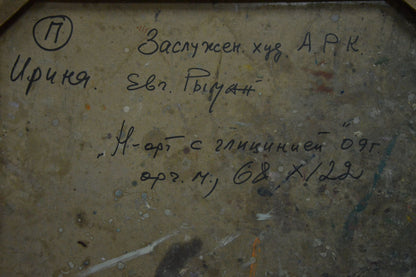 П
Заслужен. худ. А.Р.К.
Ирина. Евг. Рыман
„Н-арт с глицинией" 09г
орг. м., 68 X 122